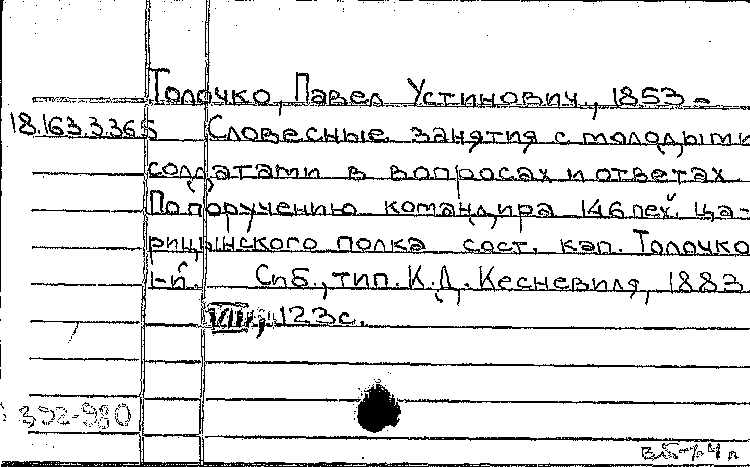 Толочко, Павел Устинович, 1853 -
18.163.3.365 Словесные занятия с молодыми
солдатами в вопросах и ответах.
По поручению командира 146 пех. Ца-
рицынского полка сост. кап. Толочко
1-й. Спб., тип. К.Д. Кесневиля, 1883
VIII, 123 с.
392-980